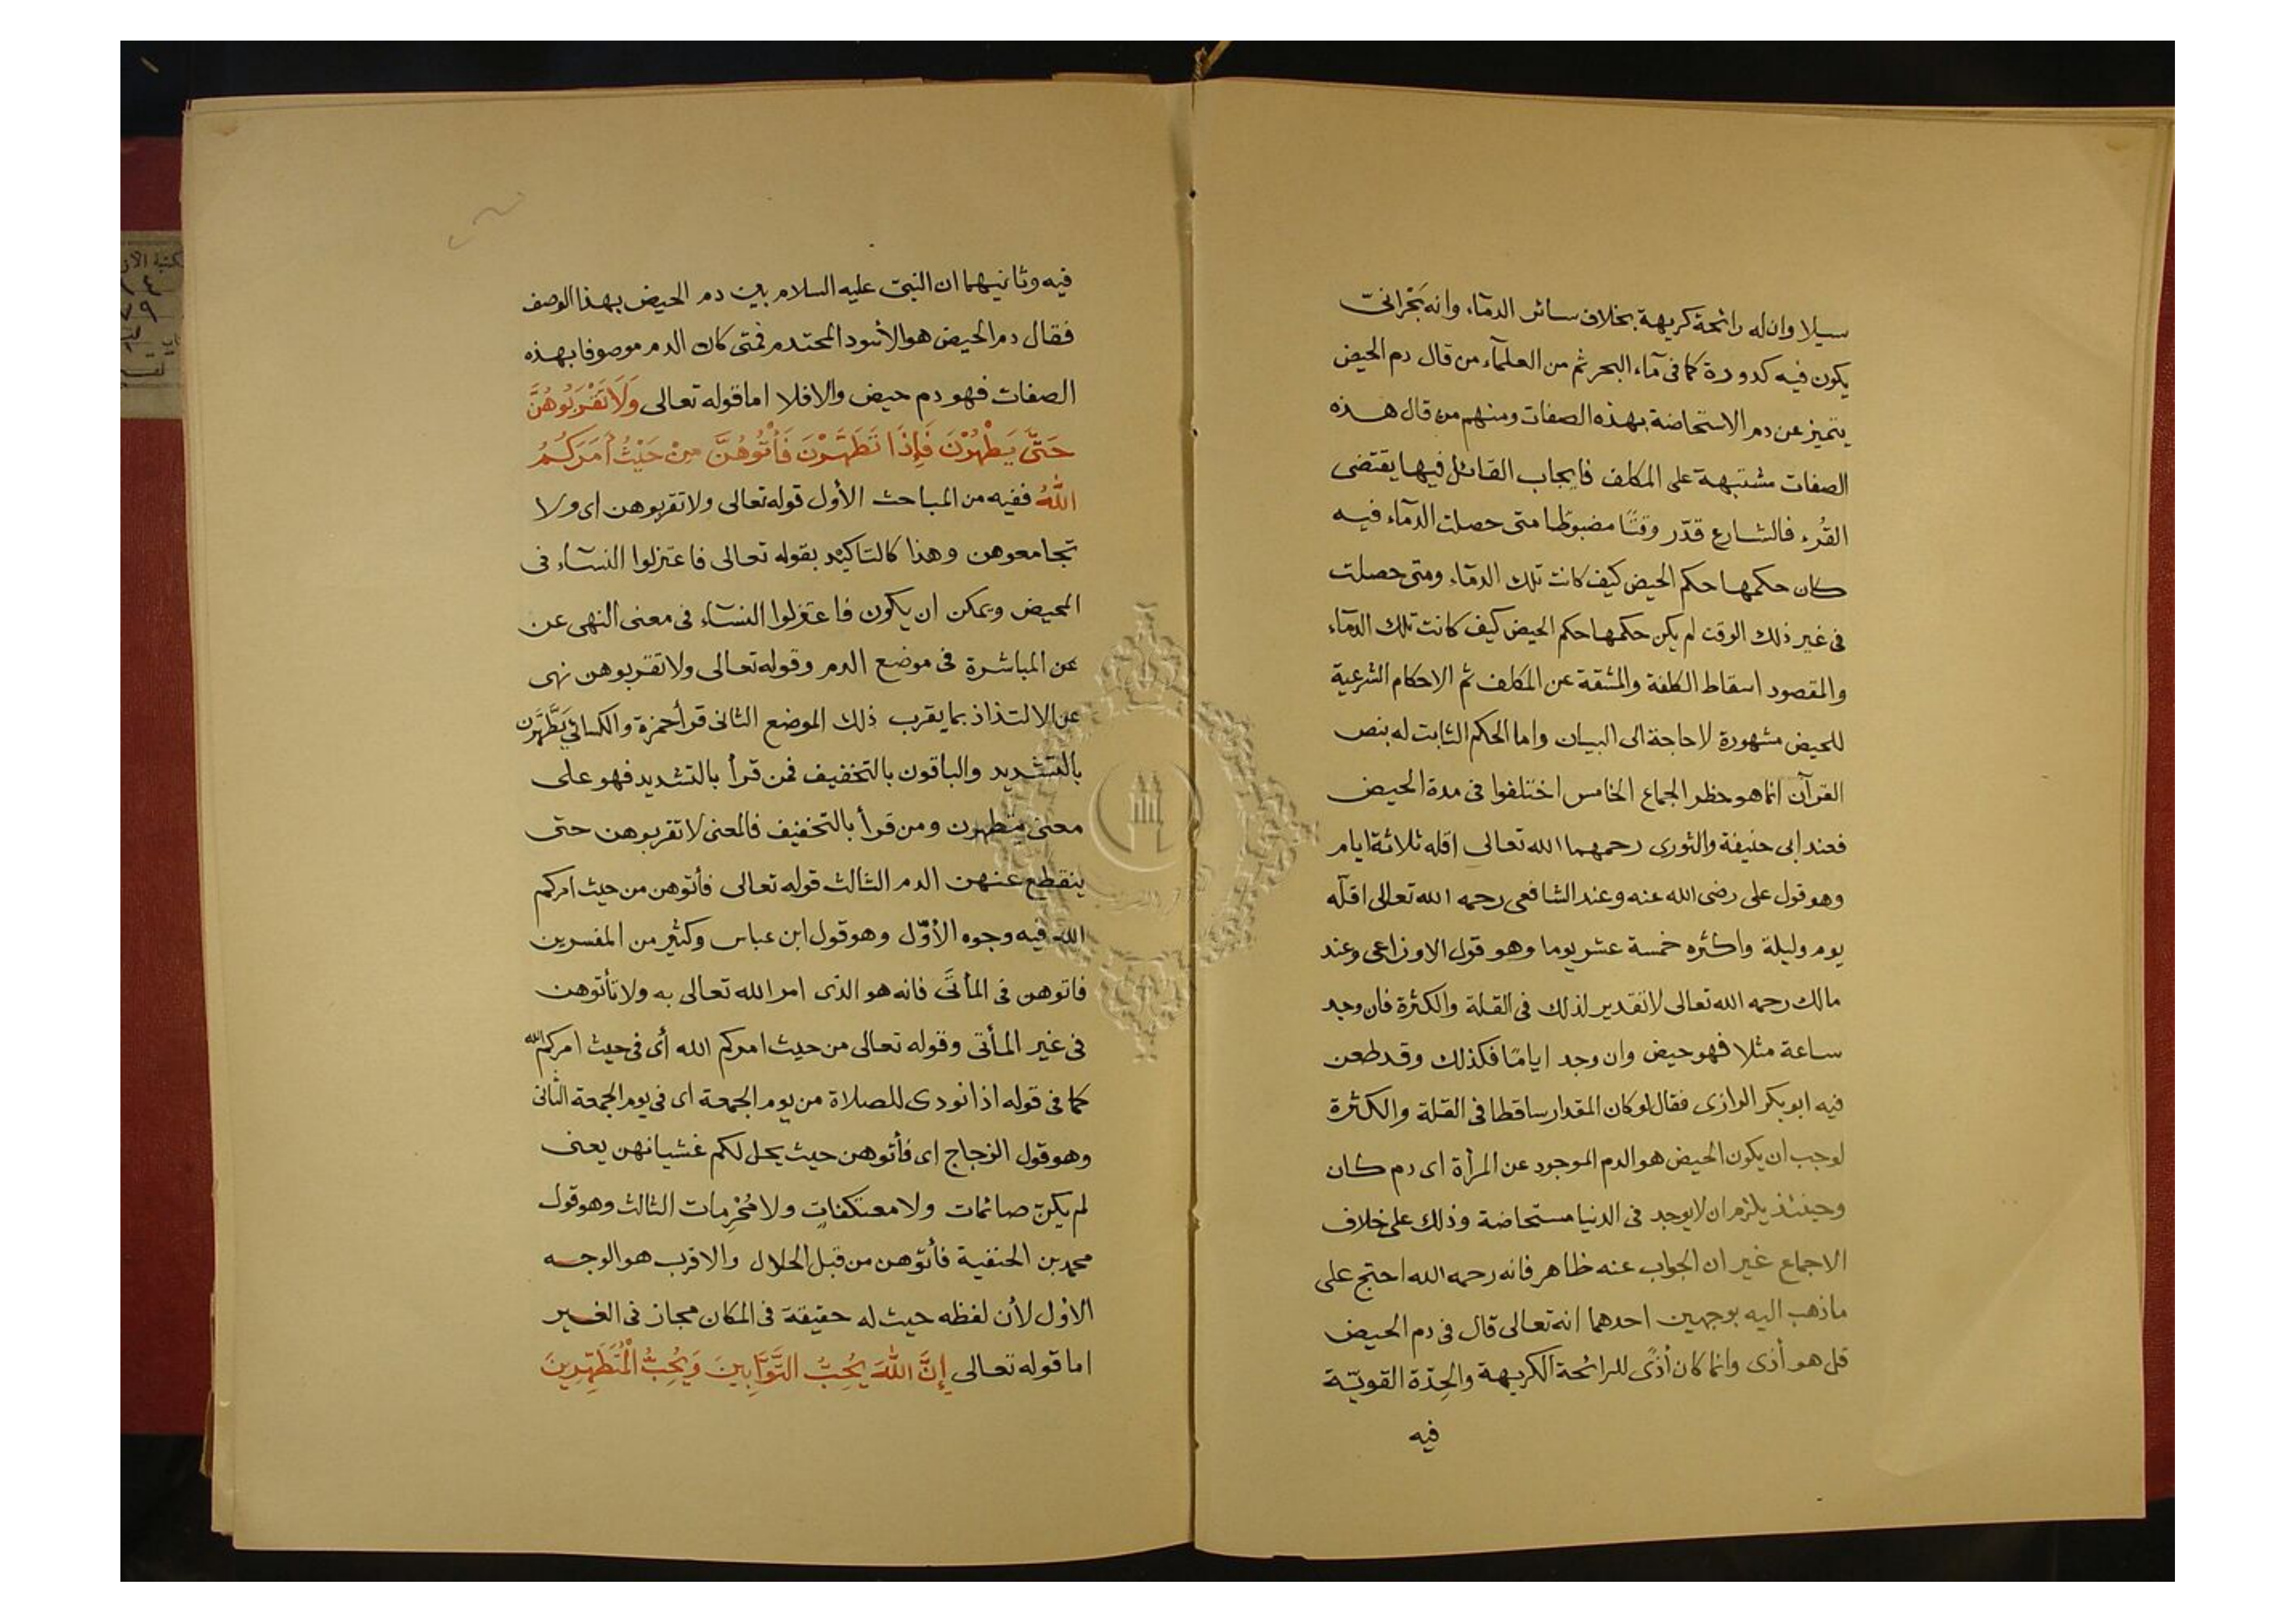 سيلا وان له رائحة كريهة بخلاف سائر الدمآء وانه بَحْرانىّ
يكون فيه كدورة كما فى مآء البحر ثم من العلمآء من قال دم الحيض
يتميز عن دم الاستحاضة بهذه الصفات ومنهم من قال هذه
الصفات مشتبهة على المكلف فايجاب القائل فيها يقتضى
القُرء فالشارع قدّر وقتًا مضبوطا متى حصلت الدمآء فيه
كان حكمها حكم الحيض كيف كانت تلك الدمآء ومتى حصلت
فى غير ذلك الوقت لم يكن حكمها حكم الحيض كيف كانت تلك الدمآء
والمقصود اسقاط الكلفة والمشقة عن المكلف ثم الاحكام الشرعية
للحيض مشهورة لا حاجة الى البيان واما الحكم الثابت له بنص
القرآن انما هو حظر الجماع الخامس اختلفوا فى مدة الحيض
فعند ابى حنيفة والثورى رحمهما الله تعالى اقله ثلاثة ايام
وهو قول على رضى الله عنه وعند الشافعى رحمه الله تعالى اقلّه
يوم وليلة واكثره خمسة عشر يوما وهو قول الاوزاعى وعند
مالك رحمه الله تعالى لا تقدير لذلك فى القلة والكثرة فان وجد
ساعة مثلا فهو حيض وان وجد ايامًا فكذلك وقد طعن
فيه ابو بكر الرازى فقال لو كان المقدار ساقطا فى القلة والكثرة
لوجب ان يكون الحيض هو الدم الموجود عن المرأة اى دم كان
وحينئذ يلزم ان لا يوجد فى الدنيا مستحاضة وذلك على خلاف
الاجماع غير ان الجواب عنه ظاهر فانه رحمه الله احتج على
ما ذهب اليه بوجهين احدهما انه تعالى قال فى دم الحيض
قل هو أذى وانما كان أذًى للرائحة الكريهة والحِدّة القويّة
فيه
فيه وثانيهما ان النبىّ عليه السلام بين دم الحيض بهذا الوصف
فقال دم الحيض هو الأسود المحتدم فمتى كان الدم موصوفا بهذه
الصفات فهو دم حيض والا فلا اما قوله تعالى وَلَا تَقْرَبُوهُنَّ
حَتَّى يَطْهُرْنَ فَإِذَا تَطَهَّرْنَ فَأْتُوهُنَّ مِنْ حَيْثُ أَمَرَكُمُ
اللَّهُ ففيه من المباحث الأول قوله تعالى ولا تقربوهن اى ولا
تجامعوهن وهذا كالتاكيد بقوله تعالى فاعتزلوا النسآء فى
المحيض ويمكن ان يكون فاعتزلوا النسآء فى معنى النهى عن
عن المباشرة فى موضع الدم وقوله تعالى ولا تقربوهن نهى
عن الالتذاذ بما يقرب ذلك الموضع الثانى قرأ حمزة والكسائى يَطَّهَّرْن
بالتشديد والباقون بالتخفيف فمن قرأ بالتشديد فهو على
معنى يتطهرن ومن قرأ بالتخفيف فالمعنى لا تقربوهن حتى
ينقطع عنهن الدم الثالث قوله تعالى فأتوهن من حيث امركم
الله فيه وجوه الأوّل وهو قول ابن عباس وكثير من المفسرين
فاتوهن فى المأتىّ فانه هو الذى امر الله تعالى به ولا تأتوهن
فى غير المأتى وقوله تعالى من حيث امركم الله أى فى حيث امركم الله
كما فى قوله اذا نودى للصلاة من يوم الجمعة اى فى يوم الجمعة الثانى
وهو قول الزجاج اى فأتوهن حيث يحل لكم غشيانهن يعنى
لم يكنّ صائمات ولا معتكفاتٍ ولا مُحْرِمات الثالث وهو قول
محمد بن الحنفية فأتوهن من قبل الحلال والاقرب هو الوجه
الاوّل لأن لفظه حيث له حقيقة فى المكان مجاز فى الغير
اما قوله تعالى إِنَّ اللَّهَ يُحِبُّ التَّوَّابِينَ وَيُحِبُّ الْمُتَطَهِّرِينَ